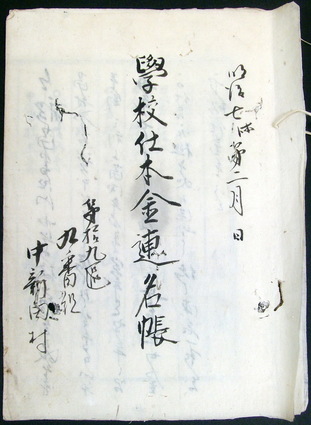 明治七年第二月日
學校仕本金連名帳
第拾九区
九番組
中新田村